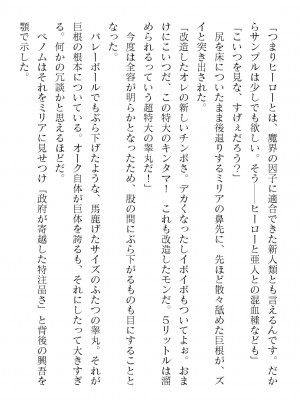 「つまりヒーローとは、魔界の因子に適合できた新人類とも言えるんです。だか
らサンプルは少しでも欲しい。そう――ヒーローと亜人との混血種なども」
「こいつを見な、すげぇだろう？」
尻を床についたまま後退りするミリアの鼻先に、先ほど散々舐めた巨根が、ズ
イと突き出された。
「改造したオレの新しいチンポさ。デカくなったしイボイボもついてよぉ。おま
けにこいつだ、この特大のキンタマ！　これも改造したモンだ。５リットルは溜
められるっていう超特大の睾丸だ！」
今度は全容が明らかとなったため、股の間にぶら下がるものも目にすることと
なった。
バレーボールでもぶら下げたような、馬鹿げたサイズのふたつの睾丸。それが
巨根の根本についている。オーク自体が巨体を誇るも、それにしたって大きすぎ
る。何かの冗談かと思えるほどだ。
ベノムはそれをミリアに見せつけ「政府が寄越した特注品さ」と背後の興吾を
顎で示した。